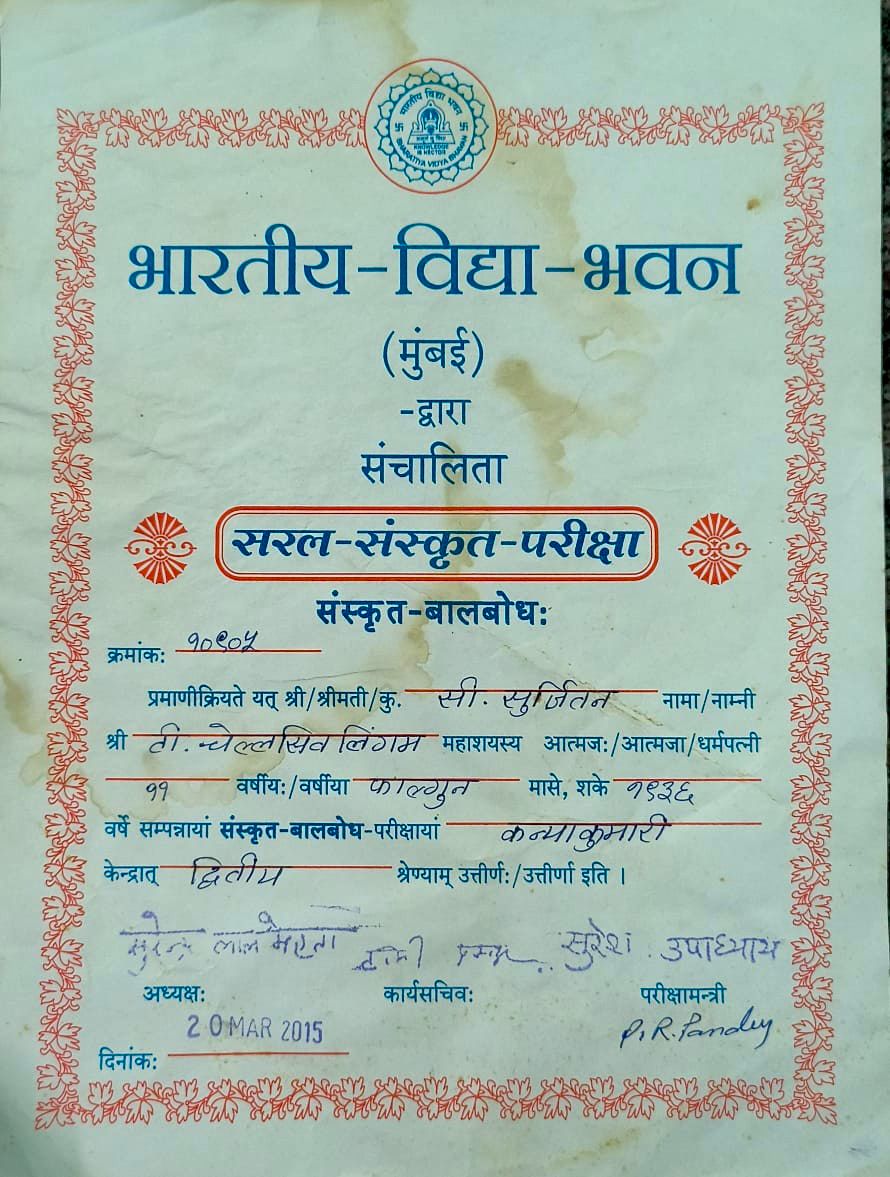 भारतीय विद्या भवन
KNOWLEDGE
IS NECTOR
BHARATIYA VIDYA BHAVAN
भारतीय-विद्या-भवन
(मुंबई)
-द्वारा
संचालिता
सरल-संस्कृत-परीक्षा
संस्कृत-बालबोधः
क्रमांकः १०९०५
प्रमाणीक्रियते यत् श्री/श्रीमती/कु. सी. सुर्जितन नामा/नाम्नी
श्री टी. चेल्लसिव लिंगम महाशयस्य आत्मजः/आत्मजा/धर्मपत्नी
११ वर्षीयः/वर्षीया फाल्गुन मासे, शके १९३६
वर्षे सम्पन्नायां संस्कृत-बालबोध-परीक्षायां कन्याकुमारी
केन्द्रात् द्वितीय श्रेण्याम् उत्तीर्णः/उत्तीर्णा इति ।
सुरेन्द्र लाल मेहता सुरेश उपाध्याय
अध्यक्षः कार्यसचिवः परीक्षामन्त्री
20 MAR 2015 P.R. Pandey
दिनांकः